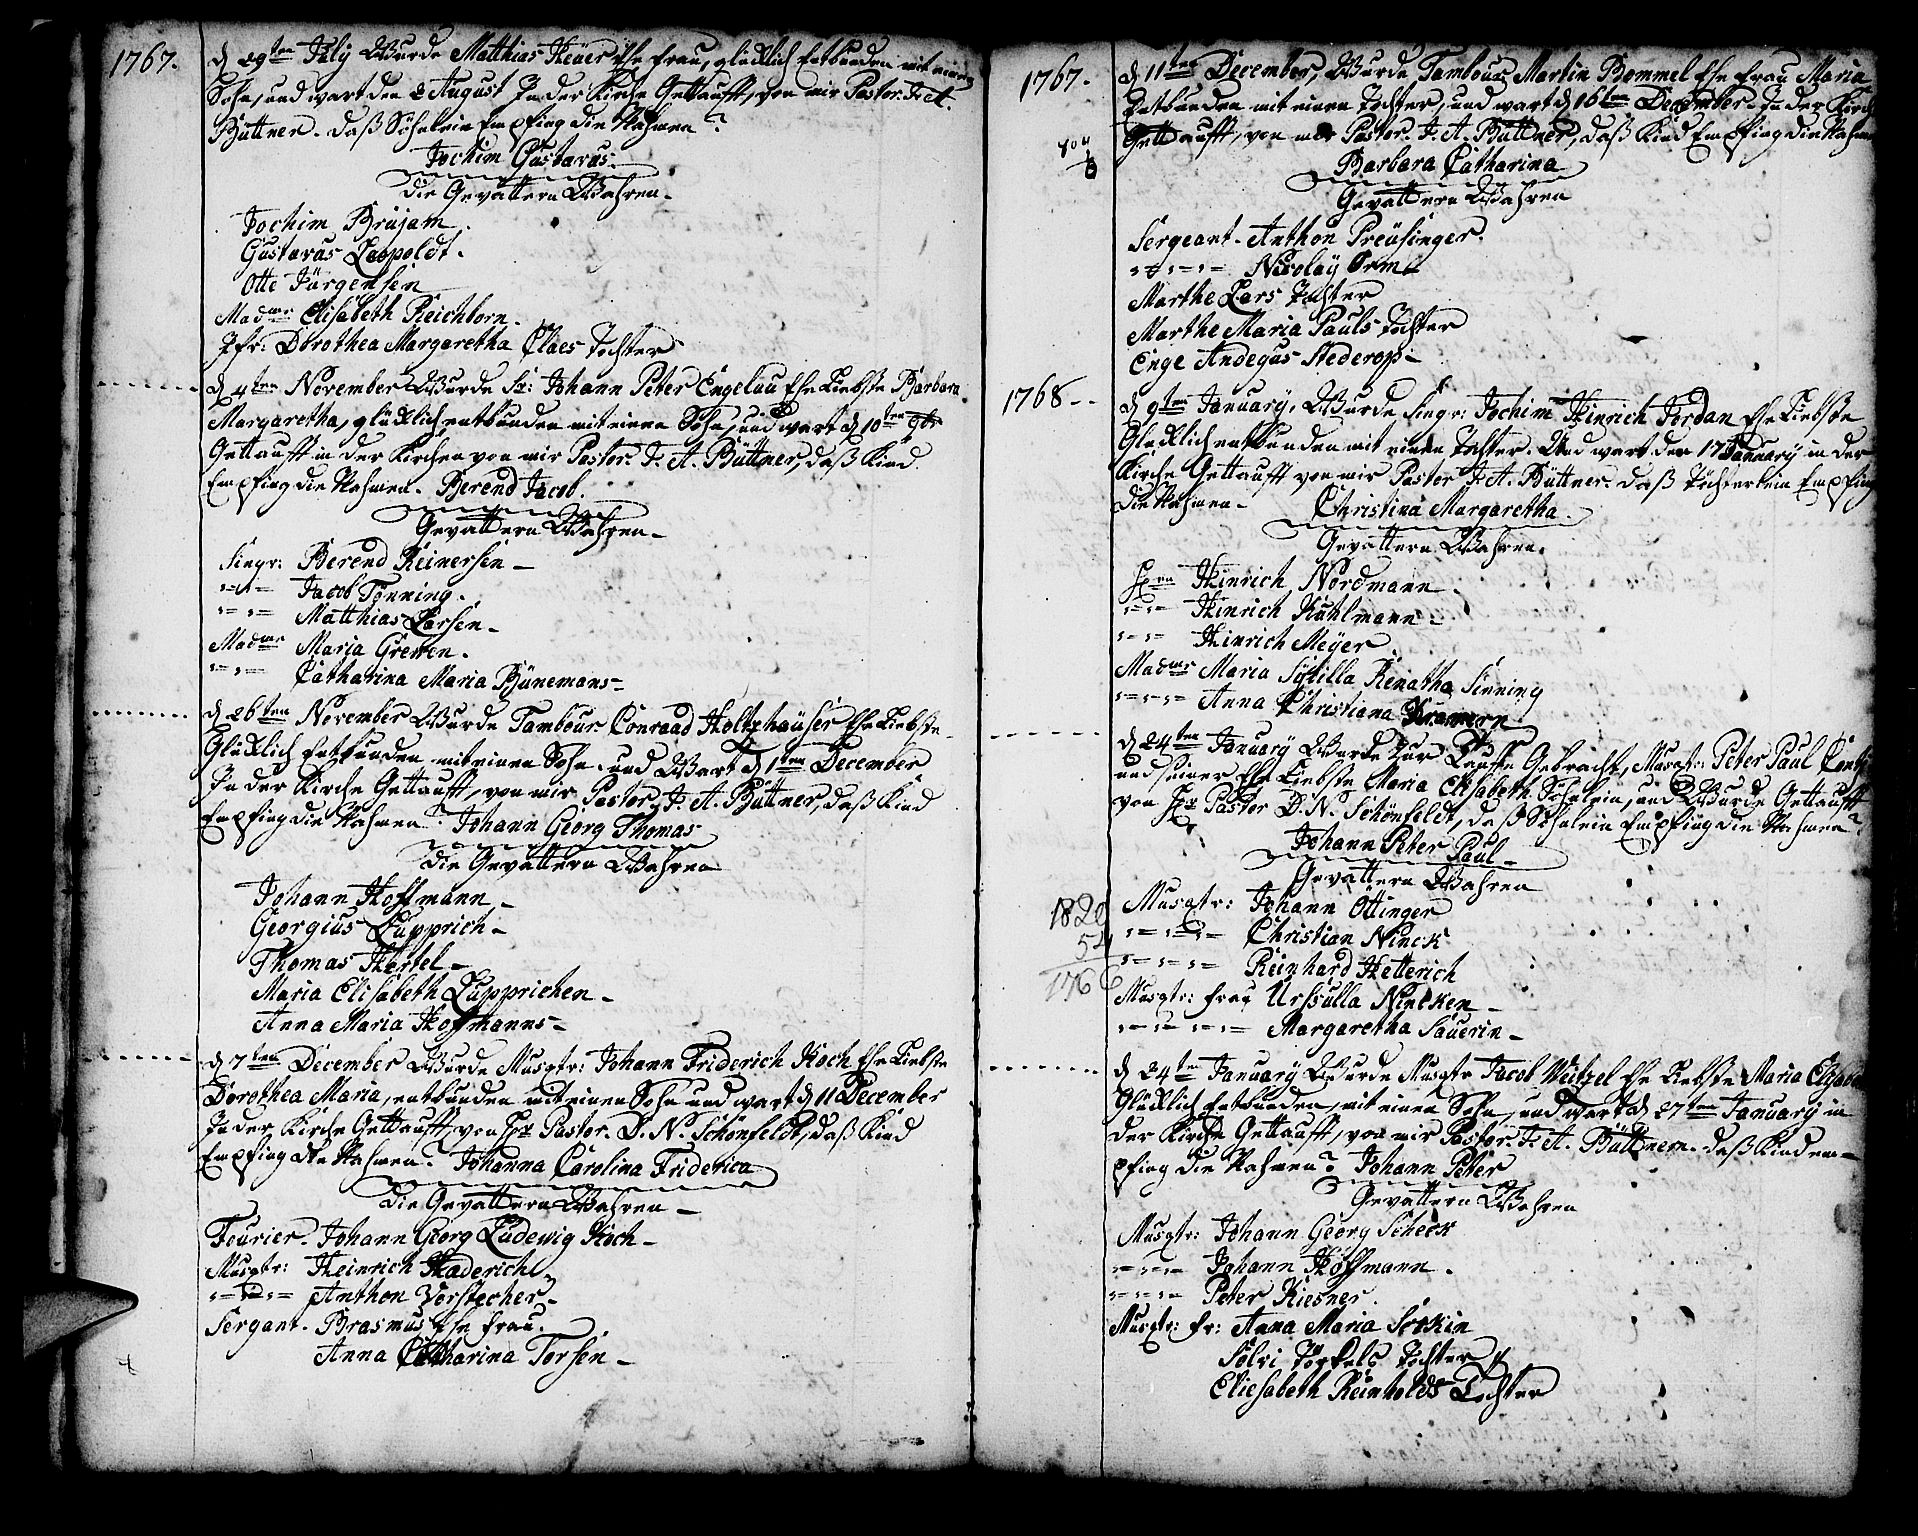 1767.
d 29ten July Wurde Matthias Heuer Ehe Frau, glücklich Entbunden mit einem
Sohn, und wart den 2 August In der Kirche Gettaufft, von mir Pastor. F. A.
Büttner. daß Söhnlein Empfing die Nahmen
Jochim Gustavus
die Gevattern Wahren.
Jochim Brujam.
Gustavus Leopoldt.
Otte Jürgensen
Madme Elisabeth Reichborn.
Jfr: Dorothea Margaretha Claes Tochter
d 4ten November Wurde Sr: Johann Peter Engelau Ehe Liebste Barbara
Margaretha, glücklich entbunden mit einen Sohn, und wart d 10ten
Gettaufft in der Kirchen von mir Pastor. F. A. Büttner, daß Kind
Empfing die Nahmen. Berend Jacob.
Gevattern Wahren
Singr: Berend Reinersen
Jacob Tonning.
Matthias Larsen
Madme Maria Greven.
Catharina Maria Bünemans
d 26ten November Wurde Tambour Conraad Holtzhauser Ehe Liebste
Glücklich Entbunden mit einen Sohn. und Wart d 1ten December
In der Kirche Gettaufft, von mir Pastor. F. A. Büttner, daß Kind
Empfing die Nahmen Johann Georg Thomas
die Gevattern Wahren
Johann Hoffmann
Georgius Lupprich
Thomas Hertel
Maria Elisabeth Lupprichen
Anna Maria Hoffmanns
d 7ten December Wurde Musqtr: Johann Friderich Koch Ehe Liebste
Dorothea Maria, entbunden mit einen Sohn und wart d 11 December
In der Kirche Gettaufft, von Hr Pastor. D. N. Schönfeldt, daß Kind
Empfing die Nahmen. Johanna Carolina Friderica
die Gevattern Wahren
Fourier. Johann Georg Ludewig Koch
Musqtr: Heinrich Haderich
Anthon Vorstecher
Sergant. Brasmus Ehe Frau.
Anna Catharina Torsen
1767.
d 11ten December, Wurde Tambour Martin Bommel Ehe Frau Maria
Entbunden mit einen Tochter, und wart d 16ten December. In der Kirch
Gettaufft, von mir Pastor. F. A. Büttner, daß Kind Empfing die Nahmen
Barbara Catharina
Gevattern Wahren
Sergeant. Anthon Preüsinger.
Nicolaÿ Orm
Marthe Lars Tochter
Marthe Maria Pauls Tochter
Enge Andegas Stederop
1768
d 9ten January, Wurde Singr: Jochim Hinrich Jordan Ehe Liebste
Glücklich entbunden mit einen Tochter. Und wart den 17 January in der
Kirche Gettaufft von mir Pastor F. A. Büttner. daß Töchterlein Empfing
die Nahmen. Christina Margaretha.
Gevattern Wahren.
Hrn Hinrich Nordmann
Hinrich Kuhlmann
Hinrich Meÿer
Madme Maria Sybilla Renatha Sinning
Anna Christiana Kramern
d 24ten January Wurde Zur Tauffe Gebracht, Musqtr: Peter Paul
und seiner Ehe Liebste Maria Elisabeth Söhnlein, und Wurde Gettaufft
von Hr Pastor D. N. Schönfeldt, daß Söhnlein Empfing die Nahmen
Johann Peter Paul
Gevattern Wahren
1820
54
1766
Musqtr: Johann Ottinger
Christian Ninck
Reinhard Hetterich
Musqtr: Frau Urssulla Nincken
Margaretha Sauerin
d 24ten January Wurde Musqtr Jacob Weitzel Ehe Liebste Maria
Glücklich Entbunden, mit einen Sohn, und wart d 27ten January in
der Kirche Gettaufft, von mir Pastor. F. A. Büttnern. daß Kind em
pfing die Nahmen Johann Peter
Gevattern Wahren
Musqtr: Johann Georg Scheck
Johann Hoffmann.
Peter Kiesner.
Musqtr: Fr: Anna Maria Sockin
Solvi Torkels Tochter
Eliesabeth Reinholds Tochter